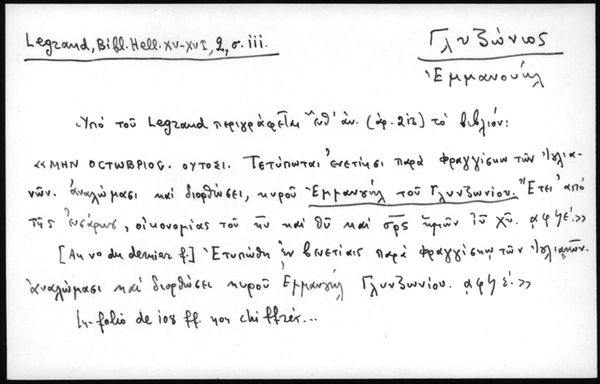 Legrand, Bibl. Hell. XV-XVI, 2, σ. iii.
Γλυζώνιος
Ἐμμανουήλ
Ὑπό τοῦ Legrand περιγράφεται (ἀρ. 212) τό βιβλίον:
«ΜΗΝ ΟCΤΩΒΡΙΟC. ΟΥΤΟCΙ. Τετύπωται ἐνετίῃσι παρά φραγγίσκῳ τῶν Ἰουλια-
νῶν. ἀναλώμασι καί διορθώσει, κυροῦ Ἐμμανουήλ τοῦ Γλυνζωνίου. Ἔτει ἀπό
τῆς ἐνσάρκου, οἰκονομίας τοῦ κυ καί θυ καί σρς ἡμῶν ἰυ χυ. αφϟέ.»
[Au vo du dernier f.] Ἐτυπώθη ἐν βενετίαις παρά φραγγίσκῳ τῶν Ἰουλιανῶν.
ἀναλώμασι καί διορθώσει κυροῦ Ἐμμανουήλ Γλυνζωνίου. αφϟέ.»
In-folio de 108 ff. non chiffrés...